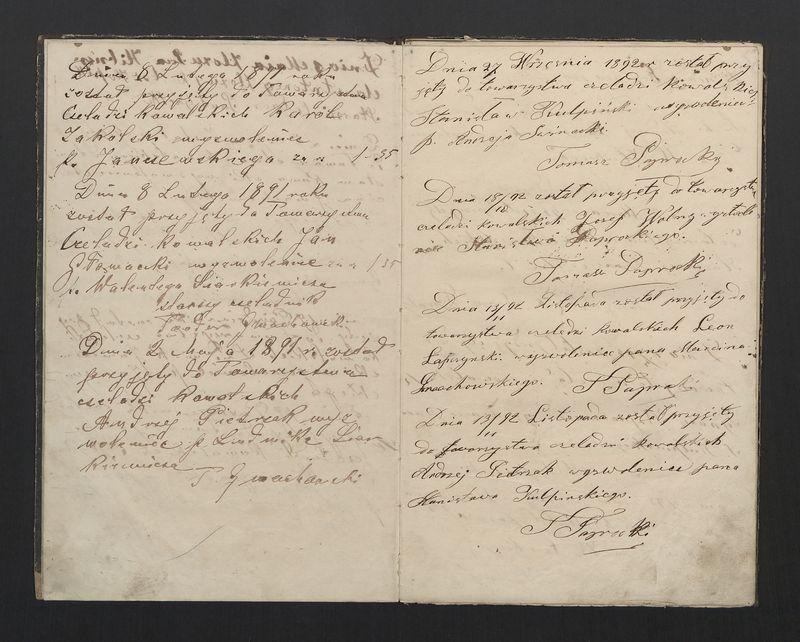 Dnia 6 Lutego 1891 roku
został przyjęty do Towarzystwa
Czeladzi kowalskich Karól
Zakolski wyzwoleniec
p. Janczewskiego za n 1-35
Dnia 8 Lutego 1891 roku
został przyjęty do Towarzystwa
Czeladzi kowalskich Jan
Głowacki wyzwoleniec za n 1 35
p. Walentego Siarkiewicza
starszy czeladnik
Dnia 2 Maja 1891 r został
przyjęty do Towarzystwa
czeladzi kowalskich
Andrzej Pietrzak wyz
woleniec p Ludwika Siar
kiewicza
T
Dnia 27 Września 1892 r został przy
jęty do towarzystwa czeladzi kowalskiej
Stanisław Kulpiński wyzwoleniec
p. Andrzeja
Tomasz Paprocki
Dnia 18/10 92 został przyjęty do towarzystwa
czeladzi kowalskich Józef Wolny wyzwole
niec Stanisława Paprockiego.
Tomasz Paprocki
Dnia 13/11 92 Listopada został przyjęty do
towarzystwa czeladzi kowalskich Leon
Łapczynski wyzwoleniec pana Marcina
T Paprocki
Dnia 13/11 92 Listopada został przyjęty
do towarzystwa czeladzi kowalskich
Andrzej Pietrzak wyzwoleniec pana
Stanisława Kulpinskiego.
T Paprocki